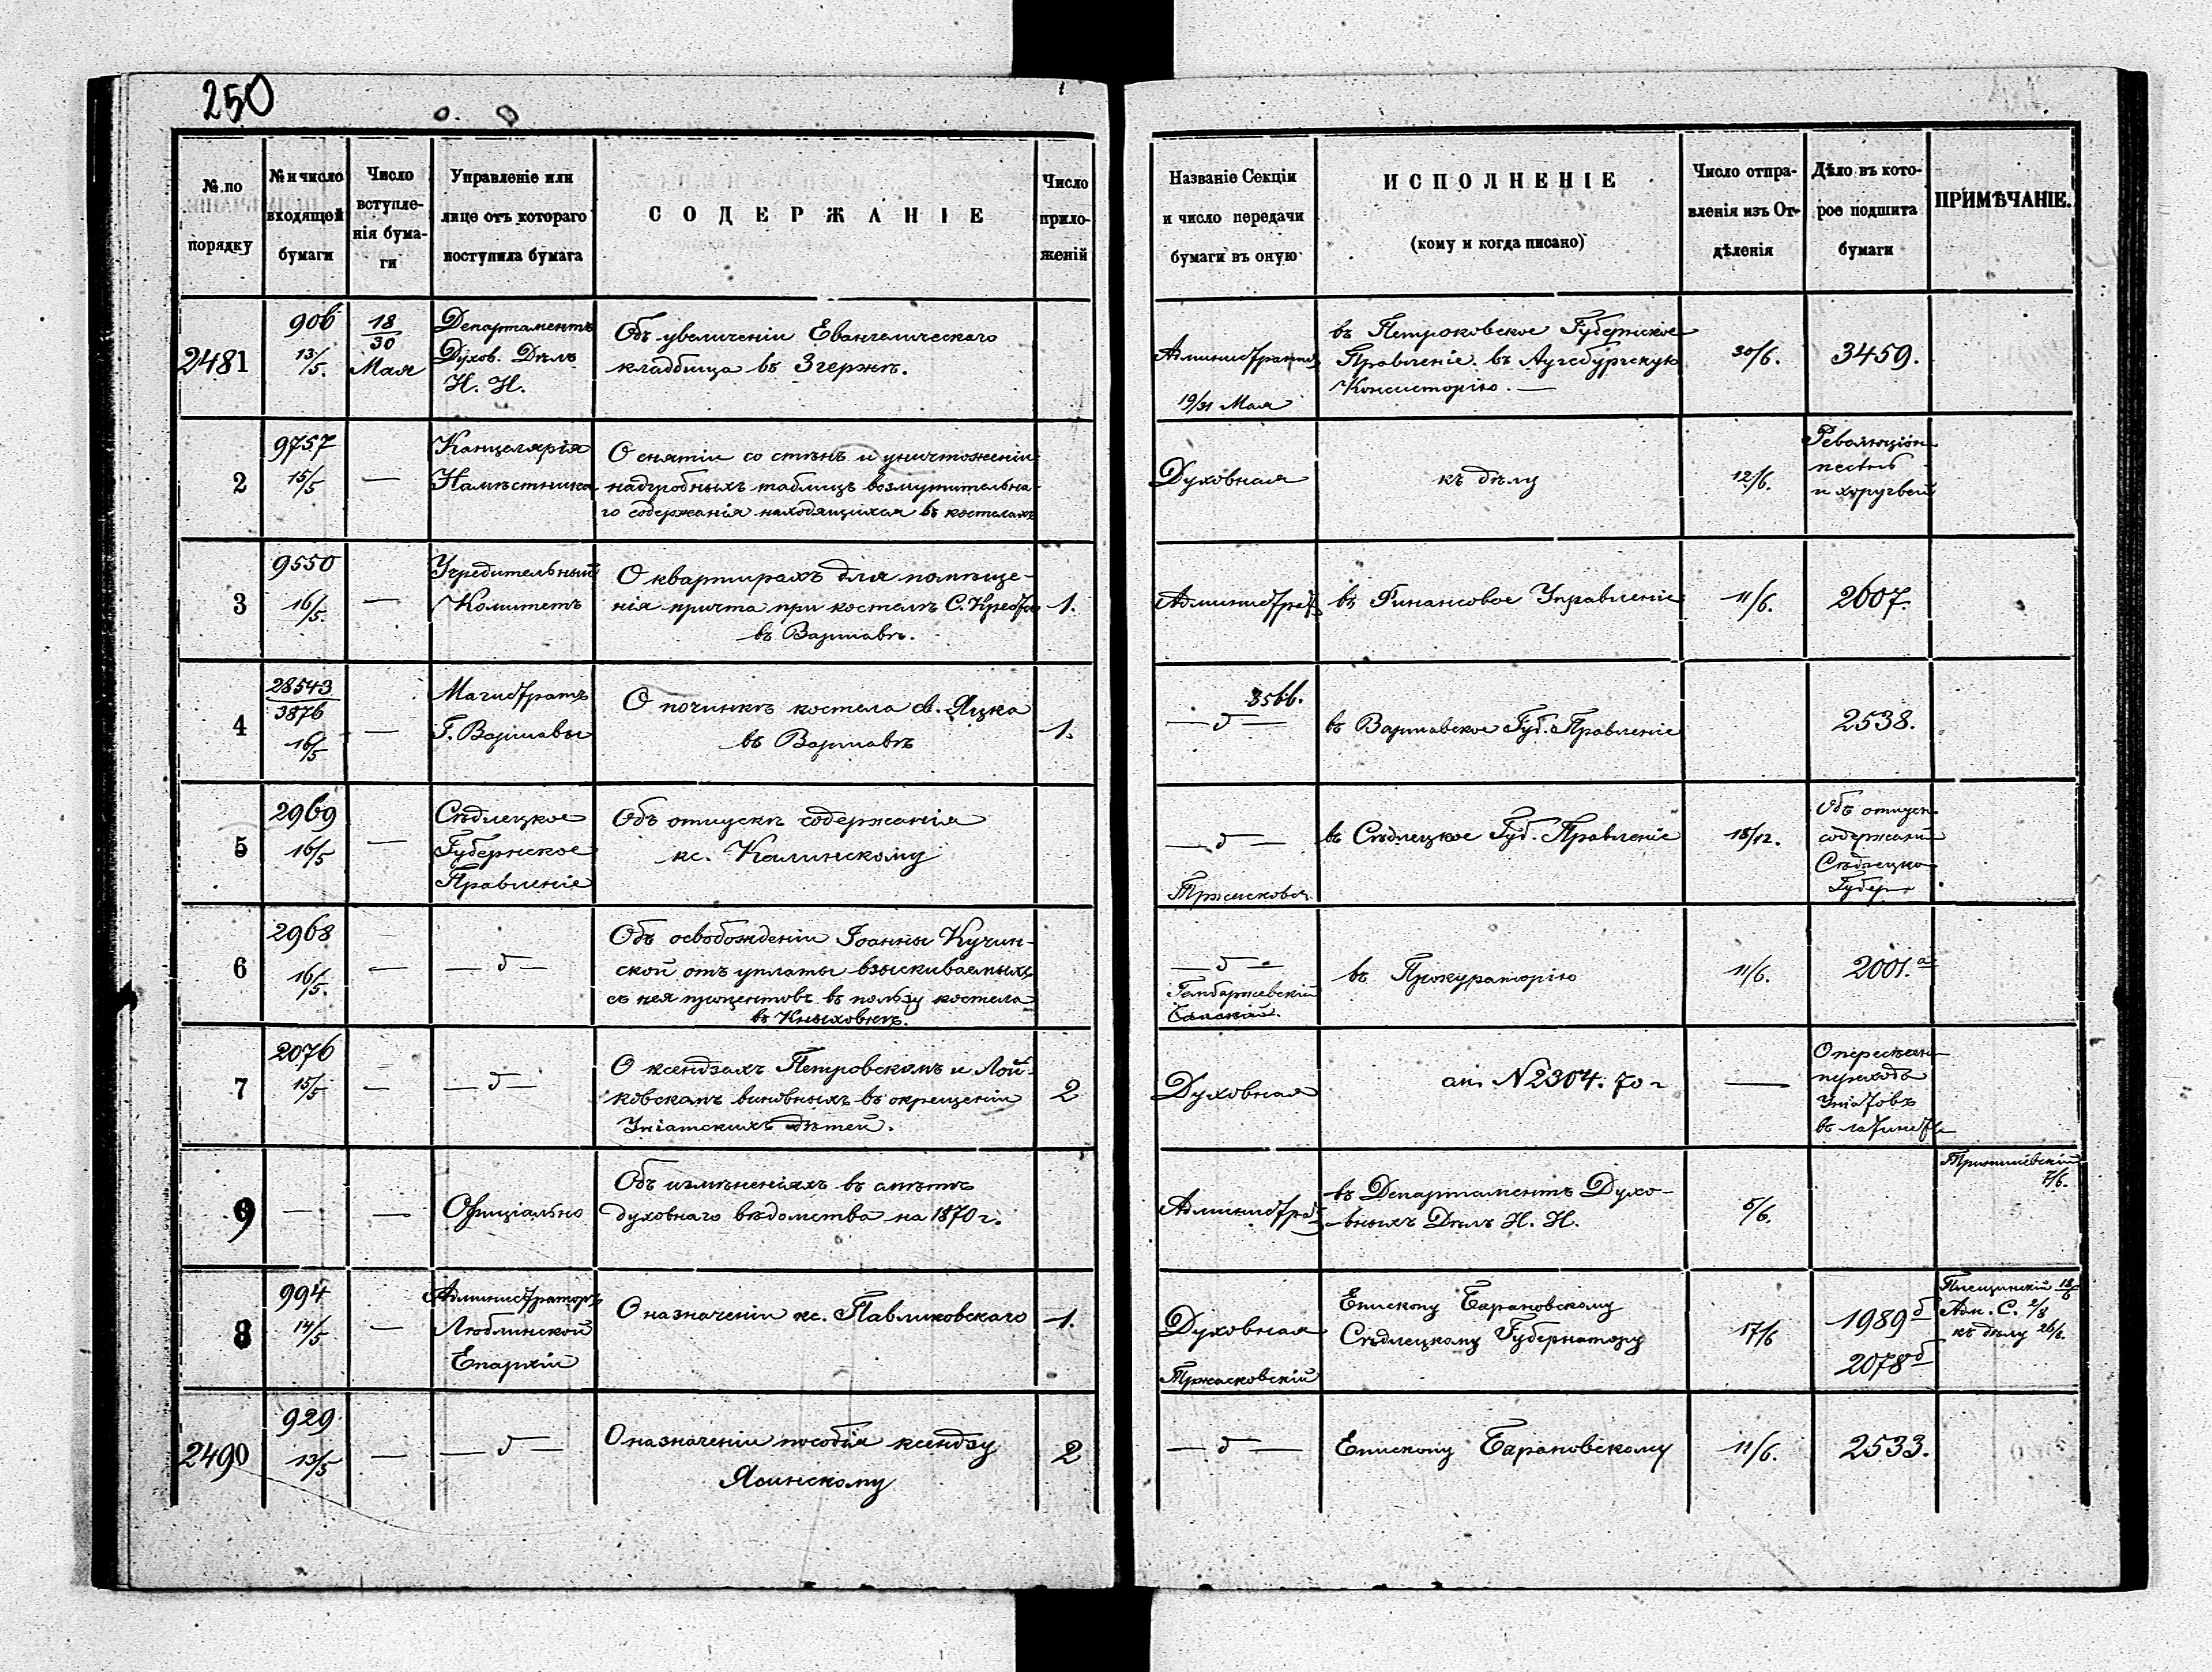 250
№ по порядку
№ и число входящей бумаги
Число вступле-
нія бума-
ги
Управленіе или
лице отъ котораго
поступила бумага
СОДЕРЖАНІЕ
Число
прило-
женій
Названіе Секціи
и число передачи
бумаги въ оную
ИСПОЛНЕНІЕ
(кому и когда писано)
Число отпра-
вленія изъ От-
дѣленія
Дѣло въ кото-
рое подшита
бумаги
ПРИМѢЧАНІЕ.
2481
906
13/5.
18/30
Мая
Департаментъ
Духов. Дѣлъ
И. И.
Объ увеличеніи Евангелическаго
кладбища въ Згержѣ.
19/31 Мая
въ Петроковское Губернское
Правленіе. въ Аугсбургскую
Консисторію. —
30/6.
3459.
2
9757
15/5
—
Канцелярія
Намѣстника
О снятіи со стѣнъ и уничтоженіи
надгробныхъ таблицъ возмутительна-
го содержанія находящихся въ костелахъ
Духовная
къ дѣлу
12/6.
и хоругвей
3
9550
16/5.
—
Учредительный
Комитетъ
О квартирахъ для помѣще-
нія причта при костелѣ С. Креста
въ Варшавѣ.
1.
въ Финансовое Управленіе
11/6.
2607.
4
28543/3876
16/5
—
Магистратъ
Г. Варшавы
О починкѣ костела св. Яцка
въ Варшавѣ
1.
3566.
— д —
въ Варшавское Губ. Правленіе
2538.
5
2969
16/5
—
Сѣдлецкое
Губернское
Правленіе
Объ отпускѣ содержанія
кс. Калинскому
— д —
въ Сѣдлецкое Губ. Правленіе
18/12.
Объ отпуск.
содержаній
Сѣдлецко
Губер
6
2968
16/5.
—
— д —
Объ освобожденіи Іоанны Кучин-
ской отъ уплаты взыскиваемыхъ
съ нея процентовъ въ пользу костела
— д —
въ Прокураторію
11/6.
2001. а
7
2076
15/5
—
— д —
О ксендзахъ Петровскомъ и Лой-
ковскомъ виновныхъ въ окрещеніи
Уніатскихъ дѣтей.
2
Духовная
N 2304. 70 г
—
перехода
Уніатовъ
9
—
—
Офиціально
Объ измѣненіяхъ въ смѣтѣ
духовнаго вѣдомства на 1870 г.
въ Департаментъ Духо-
вныхъ Дѣлъ И. И.
5/6.
7/6.
8
994
14/5
—
Администраторъ
Люблинской
Епархіи
О назначеніи кс. Павликовскаго
1.
Духовная
Тржасковскій
Епископу Барановскому
Сѣдлецкому Губернатору
17/6
1989 б
2078 б
Адм. С. 2/8
къ дѣлу 26/8.
2490
929
13/5
—
— д —
О назначеніи пособія ксендзу
Ясинскому
2
— д —
Епископу Барановскому
11/6.
2533.